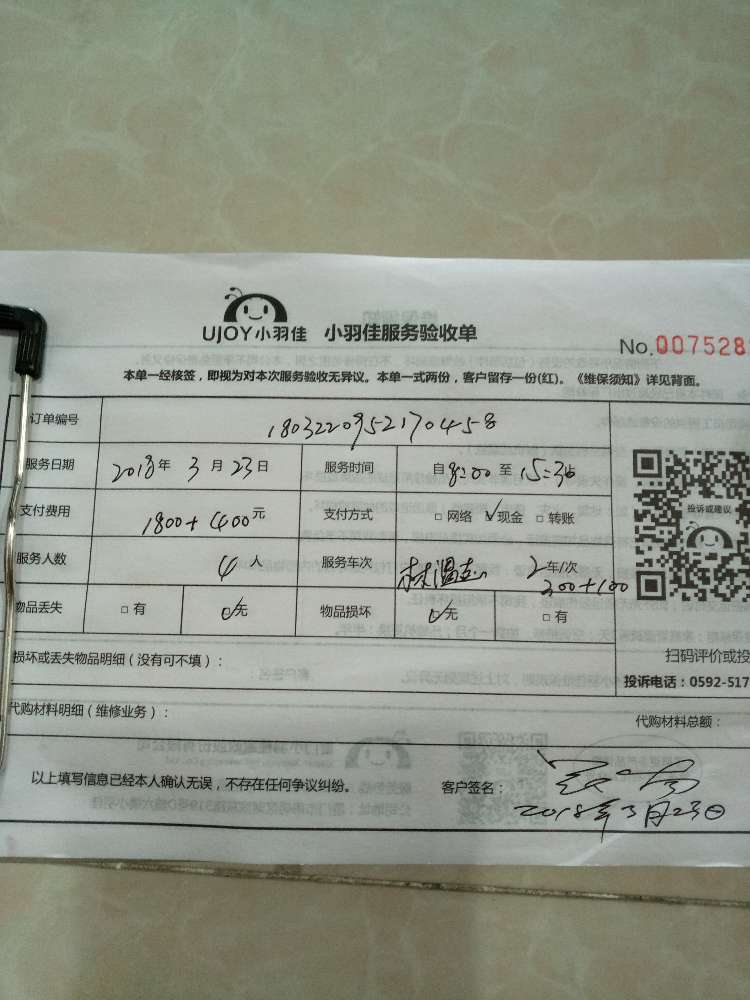 UJOY小羽佳 小羽佳服务验收单
No.0075328
本单一经核签，即视为对本次服务验收无异议。本单一式两份，客户留存一份(红)。《维保须知》详见背面。
订单编号 1803220952170458
服务日期 2018年 3月 23日 服务时间 自8:00 至 15:30
支付费用 1800+400元 支付方式 □网络 ☑现金 □转账
服务人数 4人 服务车次 林温 2车/次
200+100
投诉或建议
物品丢失 □有 ☑无 物品损坏 ☑无 □有
扫码评价或投
损坏或丢失物品明细（没有可不填）：
投诉电话：0592-517
代购材料明细（维修业务）： 代购材料总额：
以上填写信息已经本人确认无误，不存在任何争议纠纷。 客户签名：
2018年3月23日